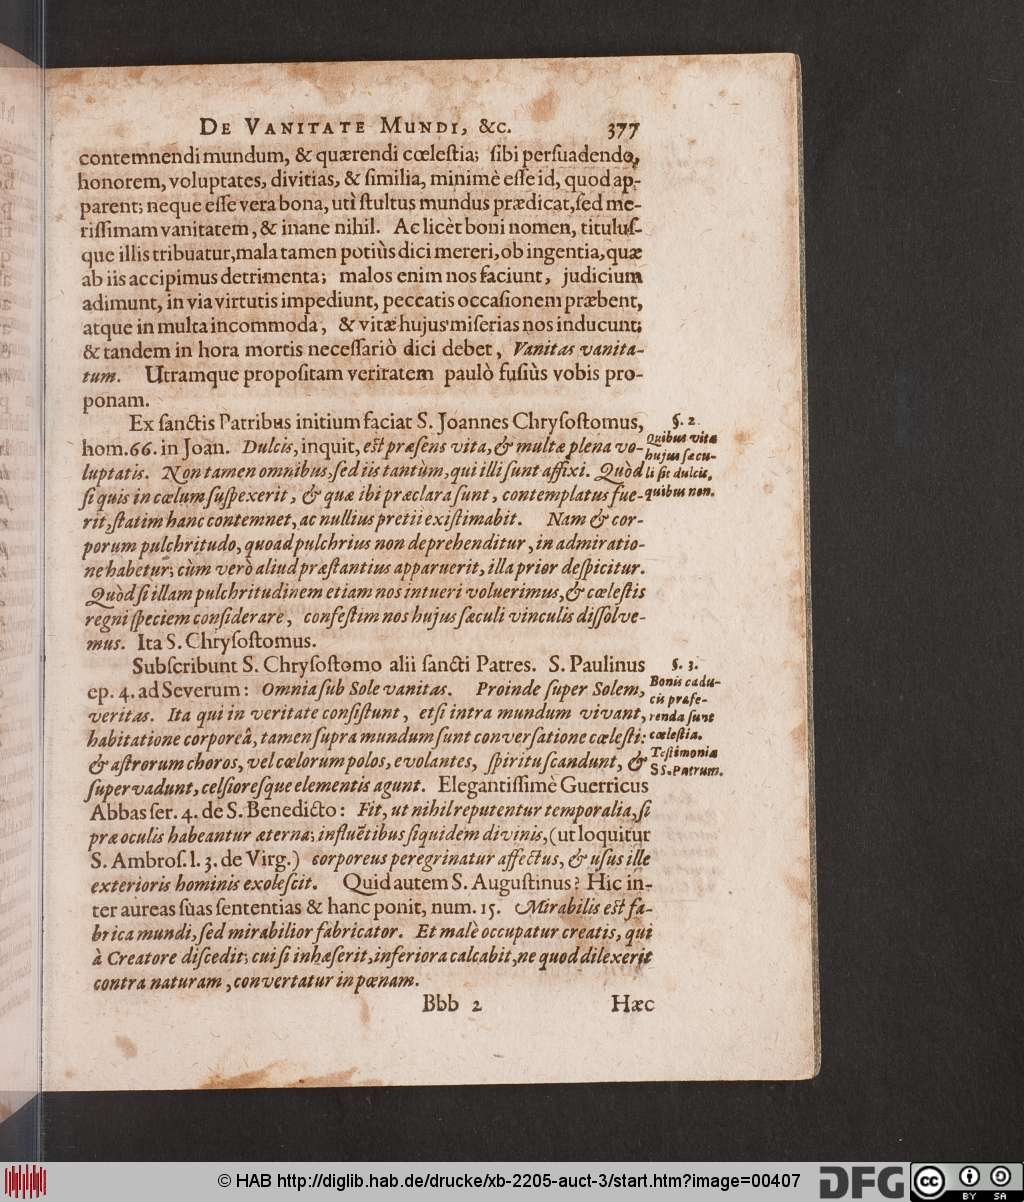 DE VANITATE MUNDI, &c. 377
contemnendi mundum, & quærendi cœleſtia; ſibi perſuadendo,
honorem, voluptates, divitias, & ſimilia, minimè eſſe id, quod ap-
parent; neque eſſe vera bona, utì ſtultus mundus prædicat, ſed me-
riſſimam vanitatem, & inane nihil. Ac licèt boni nomen, tituluſ-
que illis tribuatur, mala tamen potiùs dici mereri, ob ingentia, quæ
ab iis accipimus detrimenta; malos enim nos faciunt, judicium
adimunt, in via virtutis impediunt, peccatis occaſionem præbent,
atque in multa incommoda, & vitæ hujus miſerias nos inducunt;
& tandem in hora mortis neceſſariò dici debet, Vanitas vanita-
tum. Utramque propoſitam veriratem paulò fuſiùs vobis pro-
ponam.
Ex ſanctis Patribus initium faciat S. Joannes Chryſoſtomus,
hom. 66. in Joan. Dulcis, inquit, eſt præſens vita, & multæ plena vo-
luptatis. Non tamen omnibus, ſed iis tantùm, qui illi ſunt affixi. Quòd
ſi quis in cœlum ſuſpexerit, & quæ ibi præclara ſunt, contemplatus fue-
rit, ſtatim hanc contemnet, ac nullius pretii exiſtimabit. Nam & cor-
porum pulchritudo, quoad pulchrius non deprehenditur, in admiratio-
ne habetur; cùm verò aliud præſtantius apparuerit, illa prior deſpicitur.
Quòd ſi illam pulchritudinem etiam nos intueri voluerimus, & cœleſtis
regni ſpeciem conſiderare, confeſtim nos hujus ſæculi vinculis diſſolve-
mus. Ita S. Chryſoſtomus.
§. 2.
Quibus vitæ
hujus ſæcu-
li ſit dulcis,
quibus non.
Subſcribunt S. Chryſoſtomo alii ſancti Patres. S. Paulinus
ep. 4. ad Severum: Omnia ſub Sole vanitas. Proinde ſuper Solem,
veritas. Ita qui in veritate conſiſtunt, etſi intra mundum vivant,
habitatione corporeâ, tamen ſupra mundum ſunt converſatione cœleſti:
& aſtrorum choros, vel cœlorum polos, evolantes, ſpiritu ſcandunt, &
ſupervadunt, celſioreſque elementis agunt. Elegantiſſimè Guerricus
Abbas ſer. 4. de S. Benedicto: Fit, ut nihil reputentur temporalia, ſi
præ oculis habeantur æterna; influẽtibus ſiquidem divinis, (ut loquitur
S. Ambroſ. l. 3. de Virg.) corporeus peregrinatur affectus, & uſus ille
exterioris hominis exoleſcit. Quid autem S. Auguſtinus? Hic in-
ter aureas ſuas ſententias & hanc ponit, num. 15. Mirabilis eſt fa-
brica mundi, ſed mirabilior fabricator. Et malè occupatur creatis, qui
à Creatore diſcedit; cui ſi inhæſerit, inferiora calcabit, ne quod dilexerit
contra naturam, convertatur in pœnam.
§. 3.
Bonis cadu-
cis præfe-
renda ſunt
cœleſtia.
Teſtimonia
SS. Patrum.
Bbb 2 Hæc
© HAB http://diglib.hab.de/drucke/xb-2205-auct-3/start.htm?image=00407
DFG
cc
BY SA